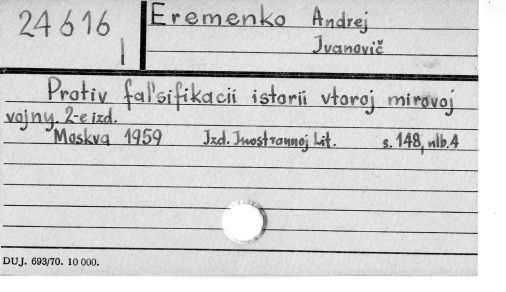 24616
I
Eremenko Andrej
Ivanovič
Protiv fal'sifikacii istorii vtoroj mirovoj
vojny. 2-e izd.
Moskva 1959 Izd. Inostrannoj Lit. s. 148, nlb. 4
DUJ. 693/70. 10 000.